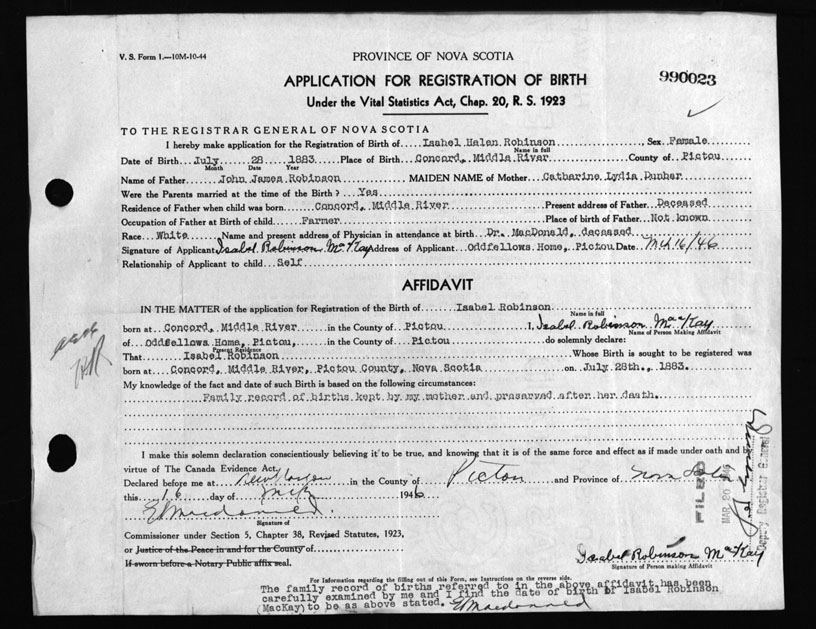 V. S. Form 1.—10M-10-44
PROVINCE OF NOVA SCOTIA
APPLICATION FOR REGISTRATION OF BIRTH
990023
Under the Vital Statistics Act, Chap. 20, R. S. 1923
TO THE REGISTRAR GENERAL OF NOVA SCOTIA
I hereby make application for the Registration of Birth of Isabel Halen Robinson, Sex Female
Name in full
Date of Birth July 28 1883 Place of Birth Concord, Middle River County of Pictou
Month Date Year
Name of Father John James Robinson MAIDEN NAME of Mother Catharine Lydia Dunbar
Were the Parents married at the time of the Birth? Yes
Residence of Father when child was born Concord, Middle River Present address of Father Deceased
Occupation of Father at Birth of child Farmer Place of birth of Father Not known
Race White Name and present address of Physician in attendance at birth Dr. MacDonald, deceased
Signature of Applicant Isabel Robinson MacKay Address of Applicant Oddfellows Home, Pictou Date Mch 16/46
Relationship of Applicant to child Self
AFFIDAVIT
IN THE MATTER of the application for Registration of the Birth of Isabel Robinson
Name in full
born at Concord, Middle River in the County of Pictou I, Isabel Robinson MacKay
Name of Person Making Affidavit
of Oddfellows Home, Pictou, in the County of Pictou do solemnly declare:
Present Residence
That Isabel Robinson Whose Birth is sought to be registered was
born at Concord, Middle River, Pictou County, Nova Scotia on July 28th., 1883.
My knowledge of the fact and date of such Birth is based on the following circumstances:
Family record of births kept by my mother and preserved after her death.
I make this solemn declaration conscientiously believing it to be true, and knowing that it is of the same force and effect as if made under oath and by
virtue of The Canada Evidence Act.
Declared before me at New Glasgow in the County of Pictou and Province of Nova Scotia
this 16 day of Mch 1946
E Macdonald.
Signature of
Commissioner under Section 5, Chapter 38, Revised Statutes, 1923,
or Justice of the Peace in and for the County of
If sworn before a Notary Public affix seal.
FILED
MAR 20 1946
Deputy Registrar General
Isabel Robinson MacKay
Signature of Person making Affidavit
For Information regarding the filling out of this Form, see Instructions on the reverse side.
The family record of births referred to in the above affidavit has been
carefully examined by me and I find the date of birth of Isabel Robinson
(MacKay) to be as above stated. E Macdonald